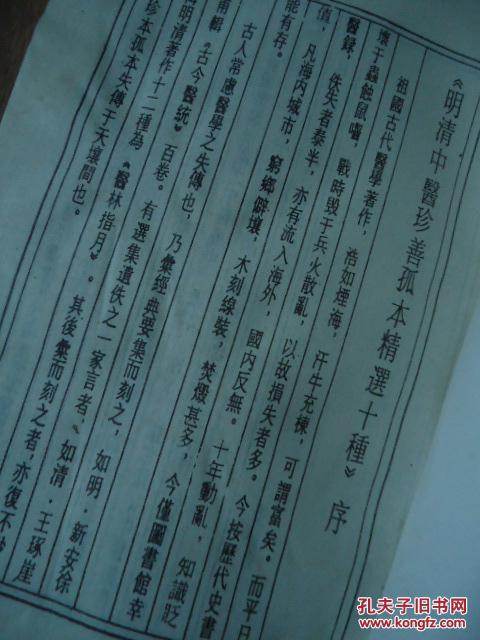 《明清中醫珍善孤本精選十種》序
祖國古代醫學著作，浩如煙海，汗牛充棟，可謂富矣。而平日
壞于蟲蝕鼠嚙，戰時毀于兵火散亂，以故損失者多。今按歷代史書
醫錄，佚失者泰半，亦有流入海外，國內反無。十年動亂，知識貶
值，凡海內城市，窮鄉僻壤，木刻線裝，焚燬甚多，今僅圖書館幸
能有存。
古人常慮醫學之失傳也，乃彙經典要集而刻之，如明·新安徐
甫輯《古今醫統》百卷。有選集遺佚之一家言者，如清·王琢崖
明清著作十二種為《醫林指月》。其後彙而刻之者，亦復不
珍本孤本失傳于天壤間也。
孔夫子旧书网